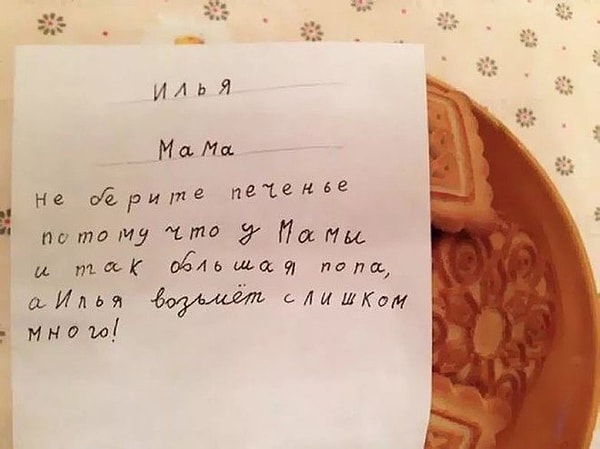 Илья
Мама
не берите печенье
потому что у Мамы
и так обльшая попа,
а Илья возьмёт слишком
много!